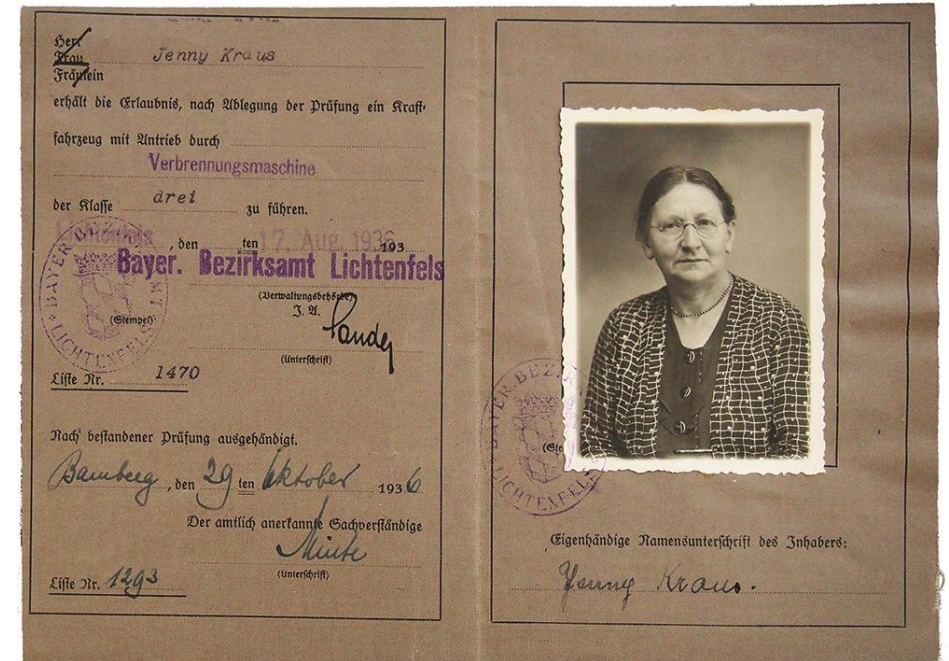 Herr
Frau Jenny Kraus
Fräulein
erhält die Erlaubnis, nach Ablegung der Prüfung ein Kraft-
fahrzeug mit Antrieb durch
Verbrennungsmaschine
der Klasse drei zu führen.
Lichtenfels, den ten 17. Aug. 1936 193
Bayer. Bezirksamt Lichtenfels
(Verwaltungsbehörde)
J. A.
(Stempel)
(Unterschrift)
BAYER. BEZIRKSAMT LICHTENFELS
Liste Nr. 1470
Nach bestandener Prüfung ausgehändigt.
Bamberg, den 29 ten Oktober 1936
Der amtlich anerkannte Sachverständige
(Unterschrift)
Liste Nr. 1293
(Ste
BAYER. BEZI
LICHTENFELS
Eigenhändige Namensunterschrift des Inhabers:
Jenny Kraus.